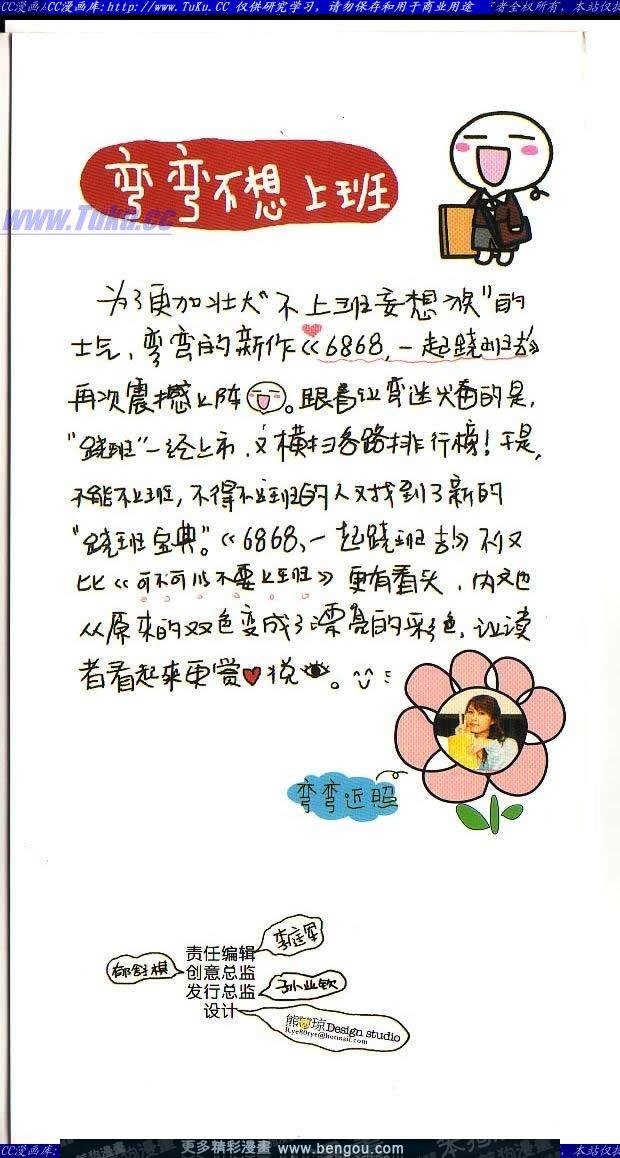 CC漫画库:http://www.TuKu.CC 仅供研究学习，请勿保存和用于商业用途
者全权所有，本站仅
弯弯不想上班
www.Tuku.cc
为了更加壮大"不上班妄想族"的
士气，弯弯的新作《6868，一起跷班去》
再次震撼上阵。跟着让弯迷兴奋的是，
"跷班"一经上市，又横扫各路排行榜！于是，
不能不上班，不得不上班的人又找到了新的
"跷班宝典"。《6868，一起跷班去》不仅
比《可不可以不要上班》更有看头，内文也
从原来的双色变成了漂亮的彩色，让读
者看起来更赏♥悦。^_^
弯弯近照
责任编辑
创意总监
发行总监
设计
Design studio
Rye80rye@hotmail.com
CC漫画库:
更多精彩漫畫 www.bengou.com